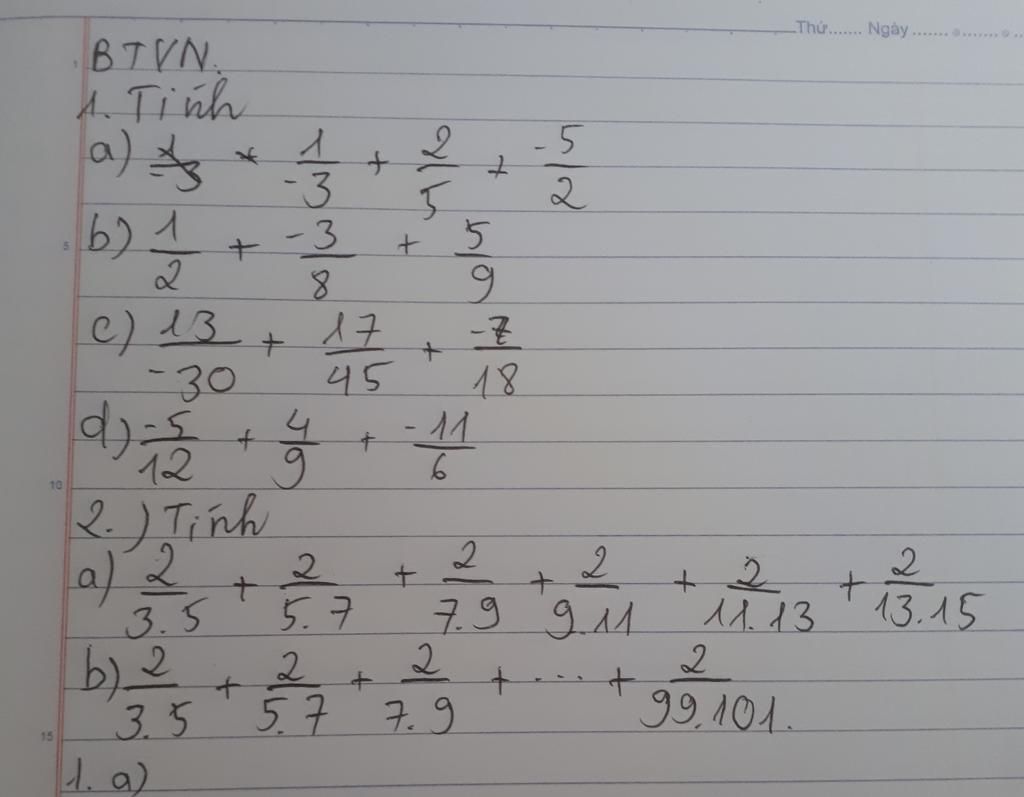 Thứ....... Ngày ....... ........ ..
BTVN.
1. Tính
a) 1/-3 + 2/5 + -5/2
b) 1/2 + -3/8 + 5/9
5
c) 13/-30 + 17/45 + -7/18
d) -5/12 + 4/9 + -11/6
10
2.) Tính
a) 2/3.5 + 2/5.7 + 2/7.9 + 2/9.11 + 2/11.13 + 2/13.15
b) 2/3.5 + 2/5.7 + 2/7.9 + ... + 2/99.101.
15
1. a)